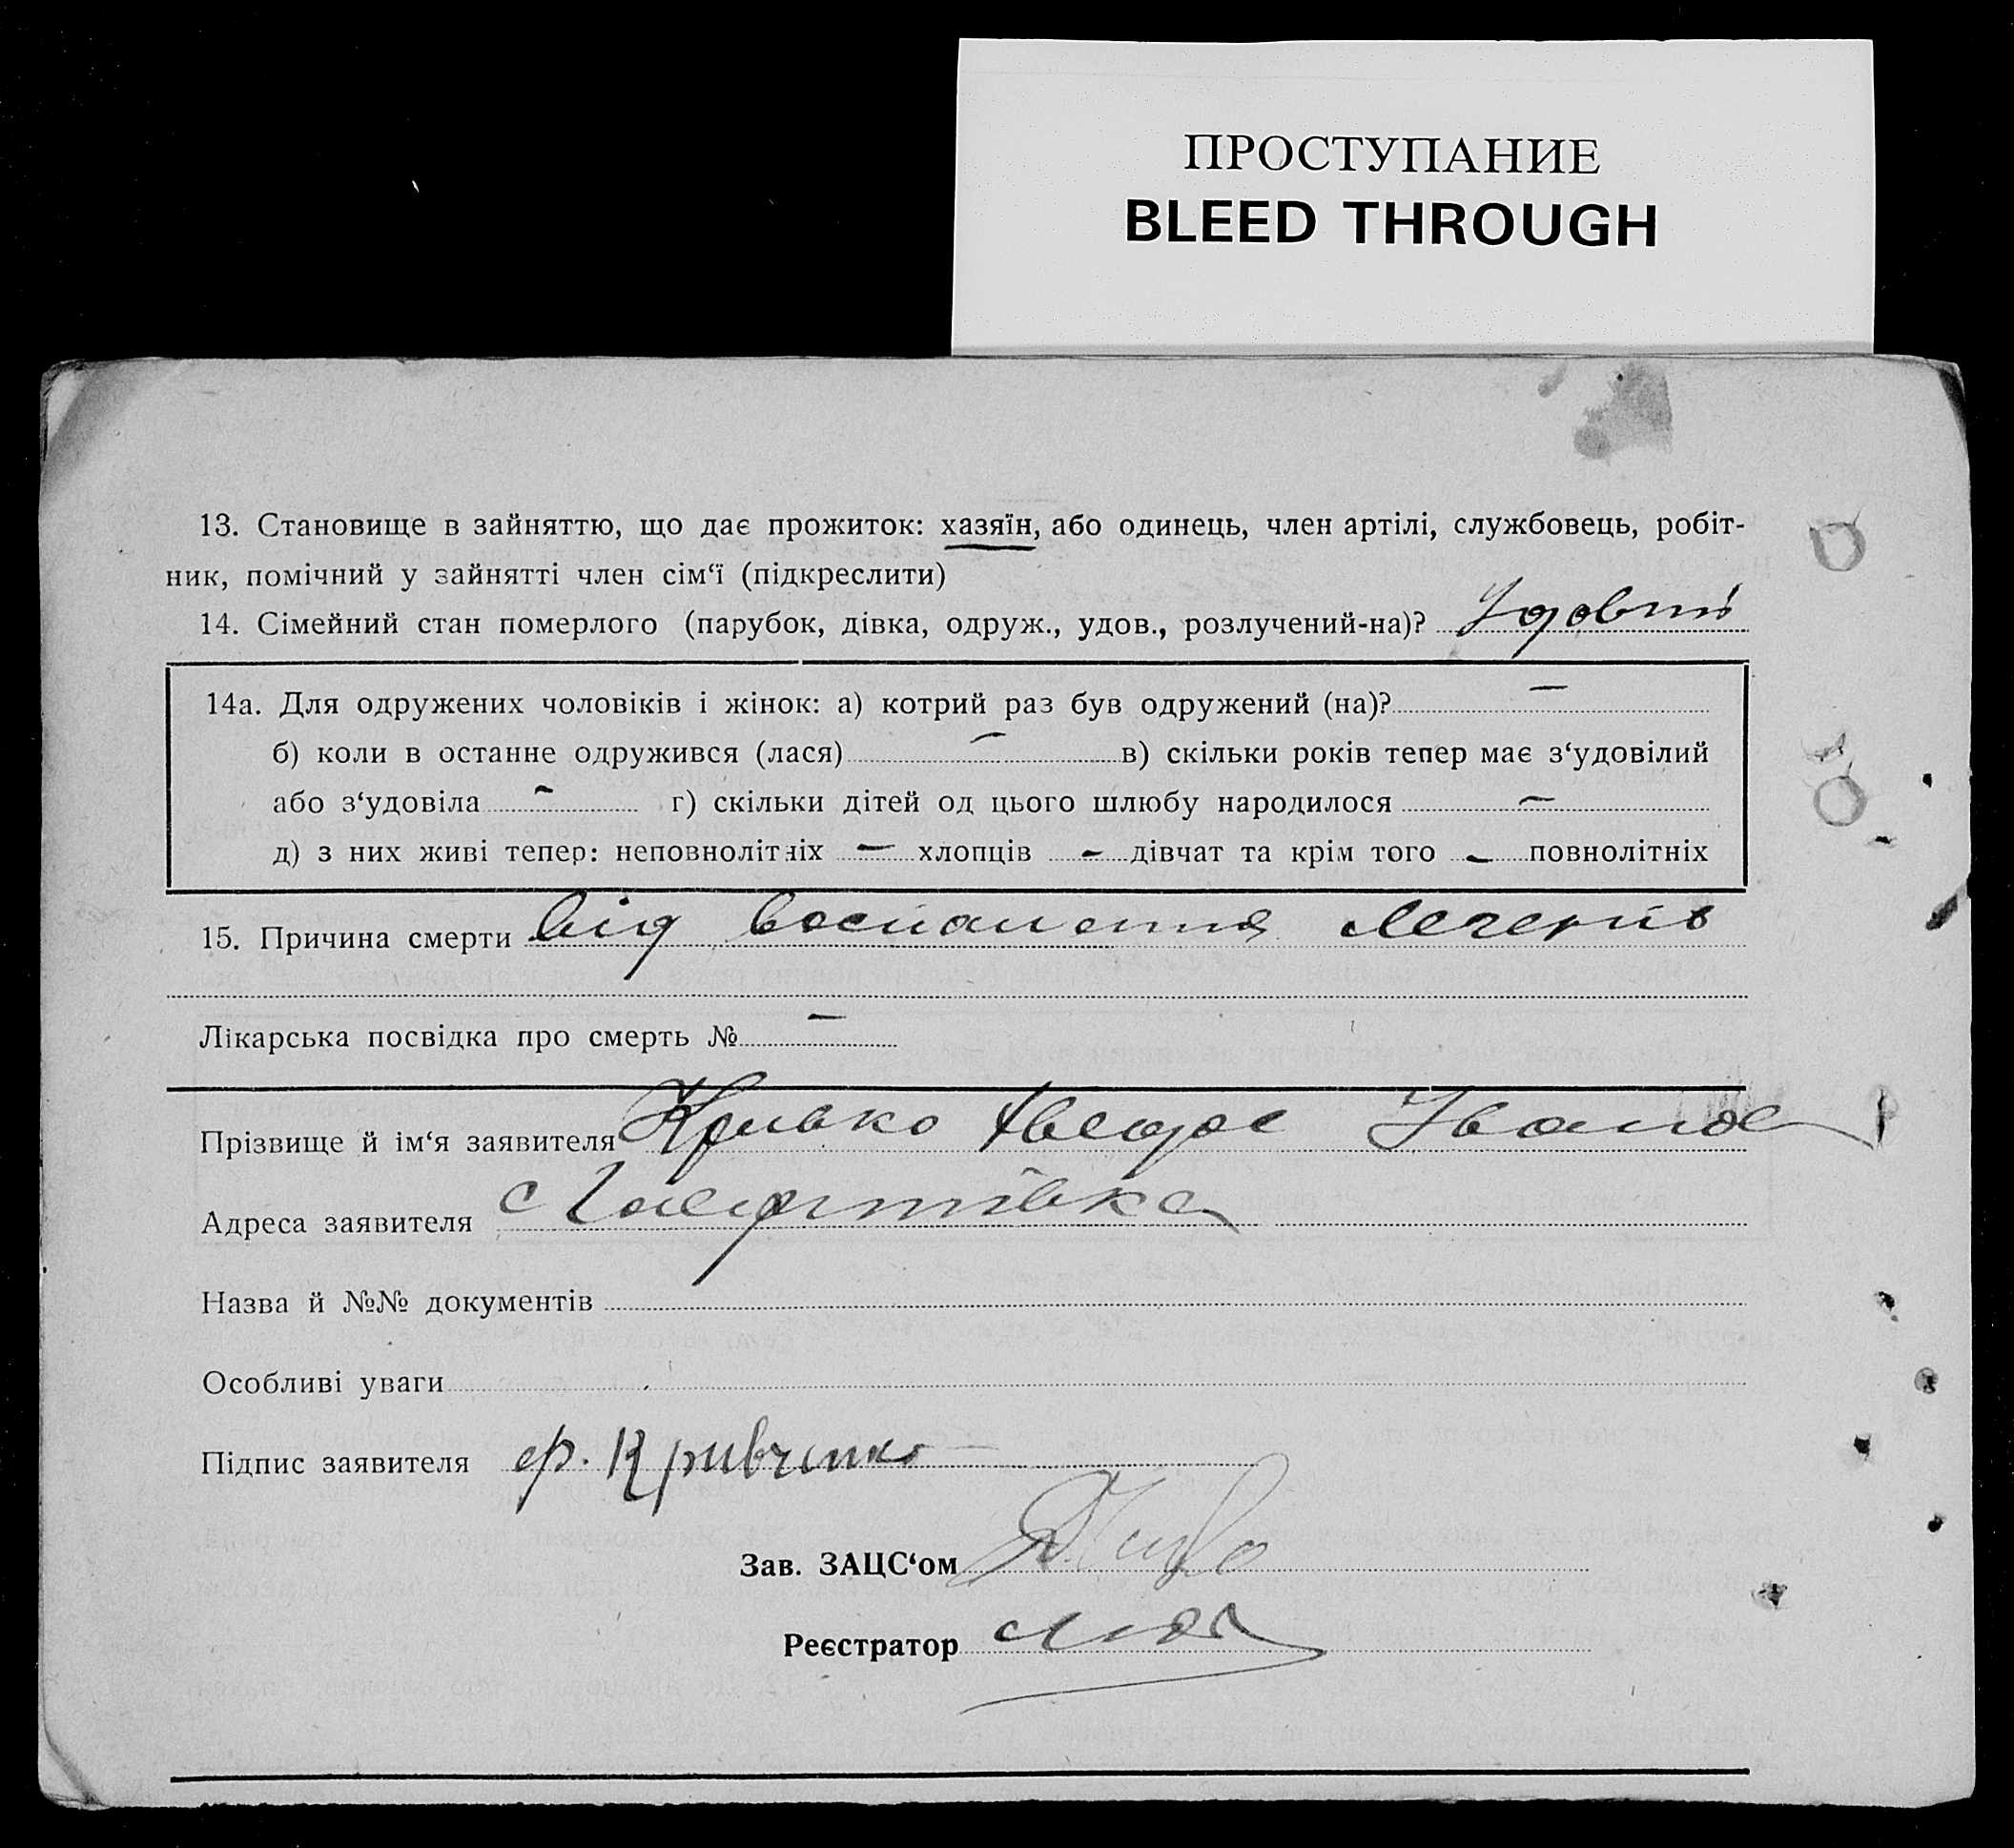 ПРОСТУПАНИЕ
BLEED THROUGH
13. Становище в зайняттю, що дає прожиток: хазяїн, або одинець, член артілі, службовець, робіт-
ник, помічний у зайнятті член сім‘ї (підкреслити)
14. Сімейний стан померлого (парубок, дівка, одруж., удов., розлучений-на)?
14а. Для одружених чоловіків і жінок: а) котрий раз був одружений (на)? —
б) коли в останне одружився (лася) — в) скільки років тепер має з‘удовілий
або з‘удовіла — г) скільки дітей од цього шлюбу народилося —
д) з них живі тепер: неповнолітніх — хлопців - дівчат та крім того - повнолітніх
15. Причина смерти від воспалення легенів
Лікарська посвідка про смерть № —
Прізвище й ім‘я заявителя Іванов
Адреса заявителя с
Назва й №№ документів
Особливі уваги
Підпис заявителя ф. Кривченко
Зав. ЗАЦС‘ом
Реєстратор